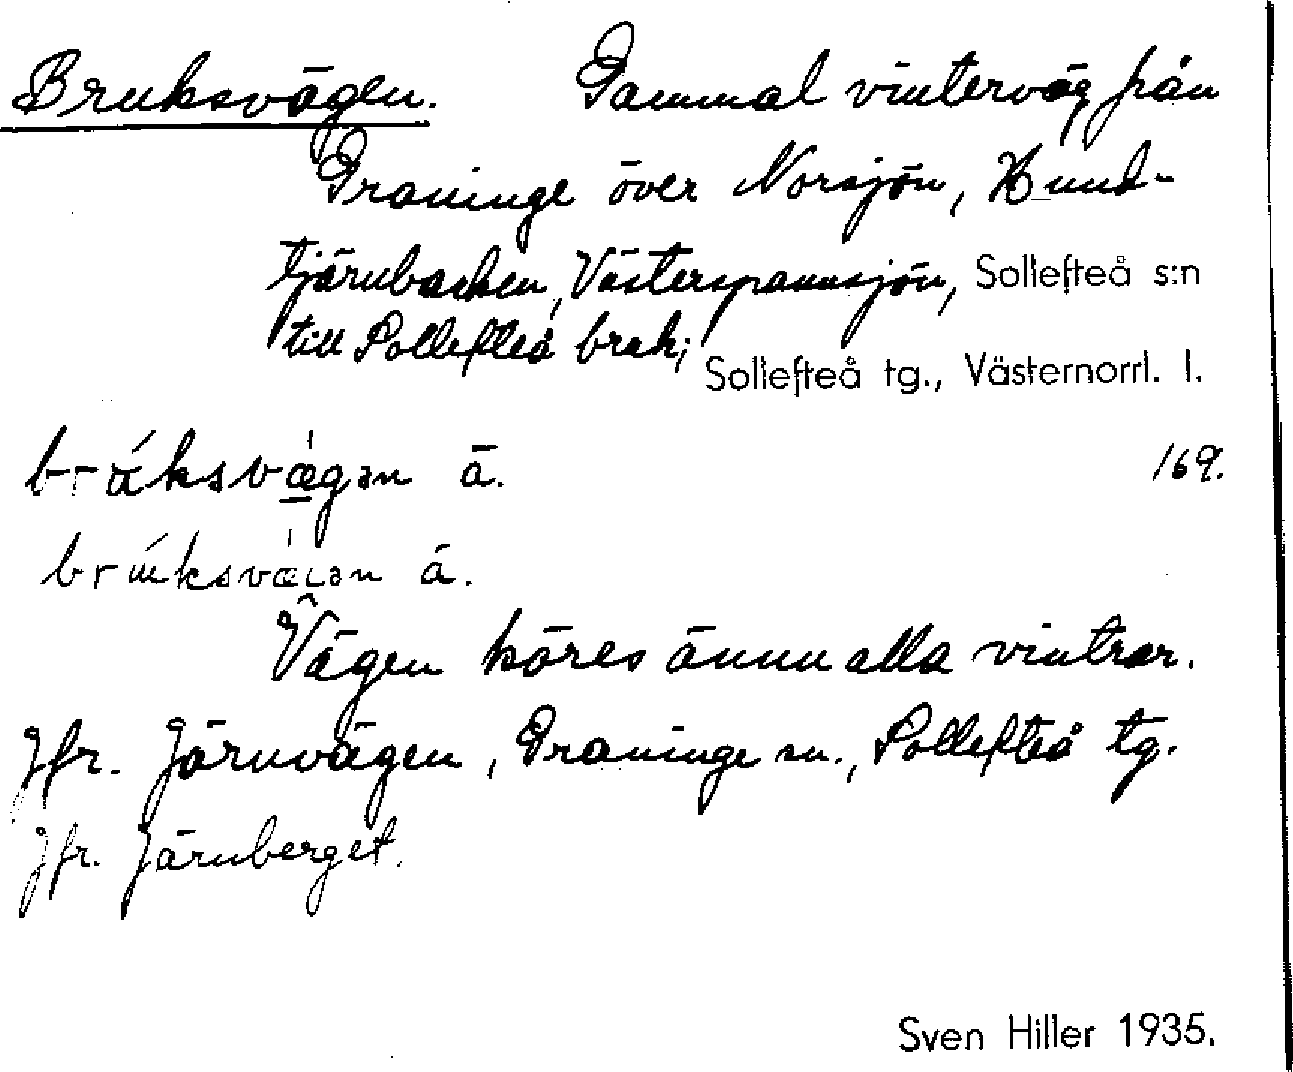 Bruksvägen. Gammal vinterväg från
Graninge över Norsjön, Hund-
tjärnbacken, Västerspannsjön, Sollefteå s:n
till Sollefteå bruk; Sollefteå tg., Västernorrl. l.
169.
Vägen köres ännu alla vintrar.
Jfr. Järnvägen, Graninge sn., Sollefteå tg.
Jfr. Järnberget.
Sven Hiller 1935.